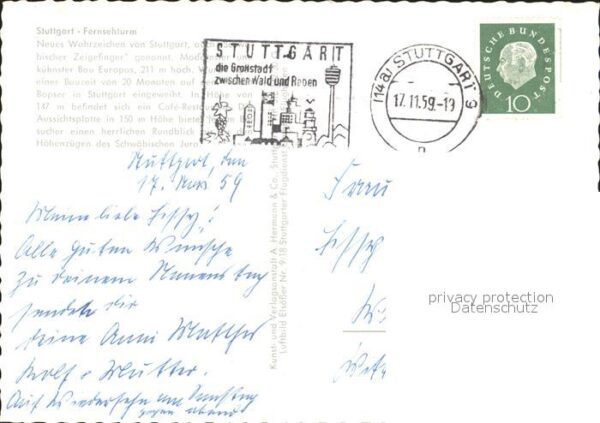 Stuttgart - Fernsehturm
Neues Wahrzeichen von Stuttgart,
bischer Zeigefinger" genannt.
kühnster Bau Europas, 211 m hoch.
einer Bauzeit von 20 Monaten auf
Bopser in Stuttgart eingeweiht. In Höhe von
147 m befindet sich ein Café-Rest
Aussichtsplatte in 150 m Höhe bietet
sucher einen herrlichen Rundblick
Höhenzügen des Schwäbischen Jura
STUTTGART
die Großstadt
zwischen Wald und Reben
(14a) STUTTGART 9
17.11.59.-19
n
DEUTSCHE BUNDESPOST
10
Stuttgart, den
17. Nov. 59
Meine liebe Sissy!
Alle guten Wünsche
zu Deinem Namenstag
sendet dir
deine Anni Mutter
Rolf + Mutter.
Auf Wiedersehn am Samstag
gegen abend
Kunst- und Verlagsanstalt A. Hermann & Co., Stuttgart
Luftbild Elsäßer Nr. 9/18 Stuttgarter Flugdienst
Frau
Sissy
W
privacy protection
Datenschutz